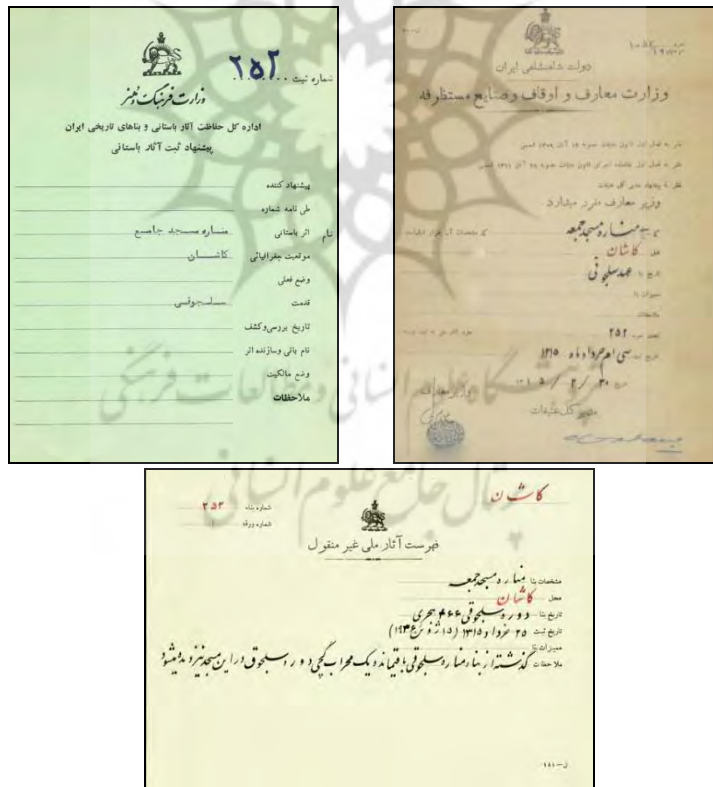 شماره ثبت ۲۵۲
وزارت فرهنگ و هنر
اداره کل حفاظت آثار باستانی و بناهای تاریخی ایران
پیشنهاد ثبت آثار باستانی
پیشنهاد کننده
طی نامه شماره
نام اثر باستانی مناره مسجد جامع
موقعیت جغرافیائی کاشان
وضع فعلی
قدمت سلجوقی
تاریخ بررسی و کشف
نام بانی و سازنده اثر
وضع مالکیت
ملاحظات
دولت شاهنشاهی ایران
وزارت معارف و اوقاف و صنایع مستظرفه
وزیر معارف مقرر میدارد
مناره مسجد جمعه
کاشان
عهد سلجوقی
ملاحظات
۲۵۲
سی ام خرداد ماه ۱۳۱۵
وزیر معارف
کاشان
شماره بناء ۲۵۲
شماره ورقه ۱
فهرست آثار ملی غیر منقول
مشخصات بنا مناره مسجد جمعه
محل کاشان
تاریخ بنا دوره سلجوقی ۴۶۶ هجری
تاریخ ثبت ۲۵ خرداد ۱۳۱۵ (۱۵ ژوئن ۱۹۳۶)
ممیزات بنا
ملاحظات گذشته از بنا مناره سلجوقی باقیمانده یک محراب گچی دوره سلجوق در این مسجد نیز دیده میشود
پژوهشگاه علوم انسانی و مطالعات فرهنگی
پرتال جامع علوم انسانی